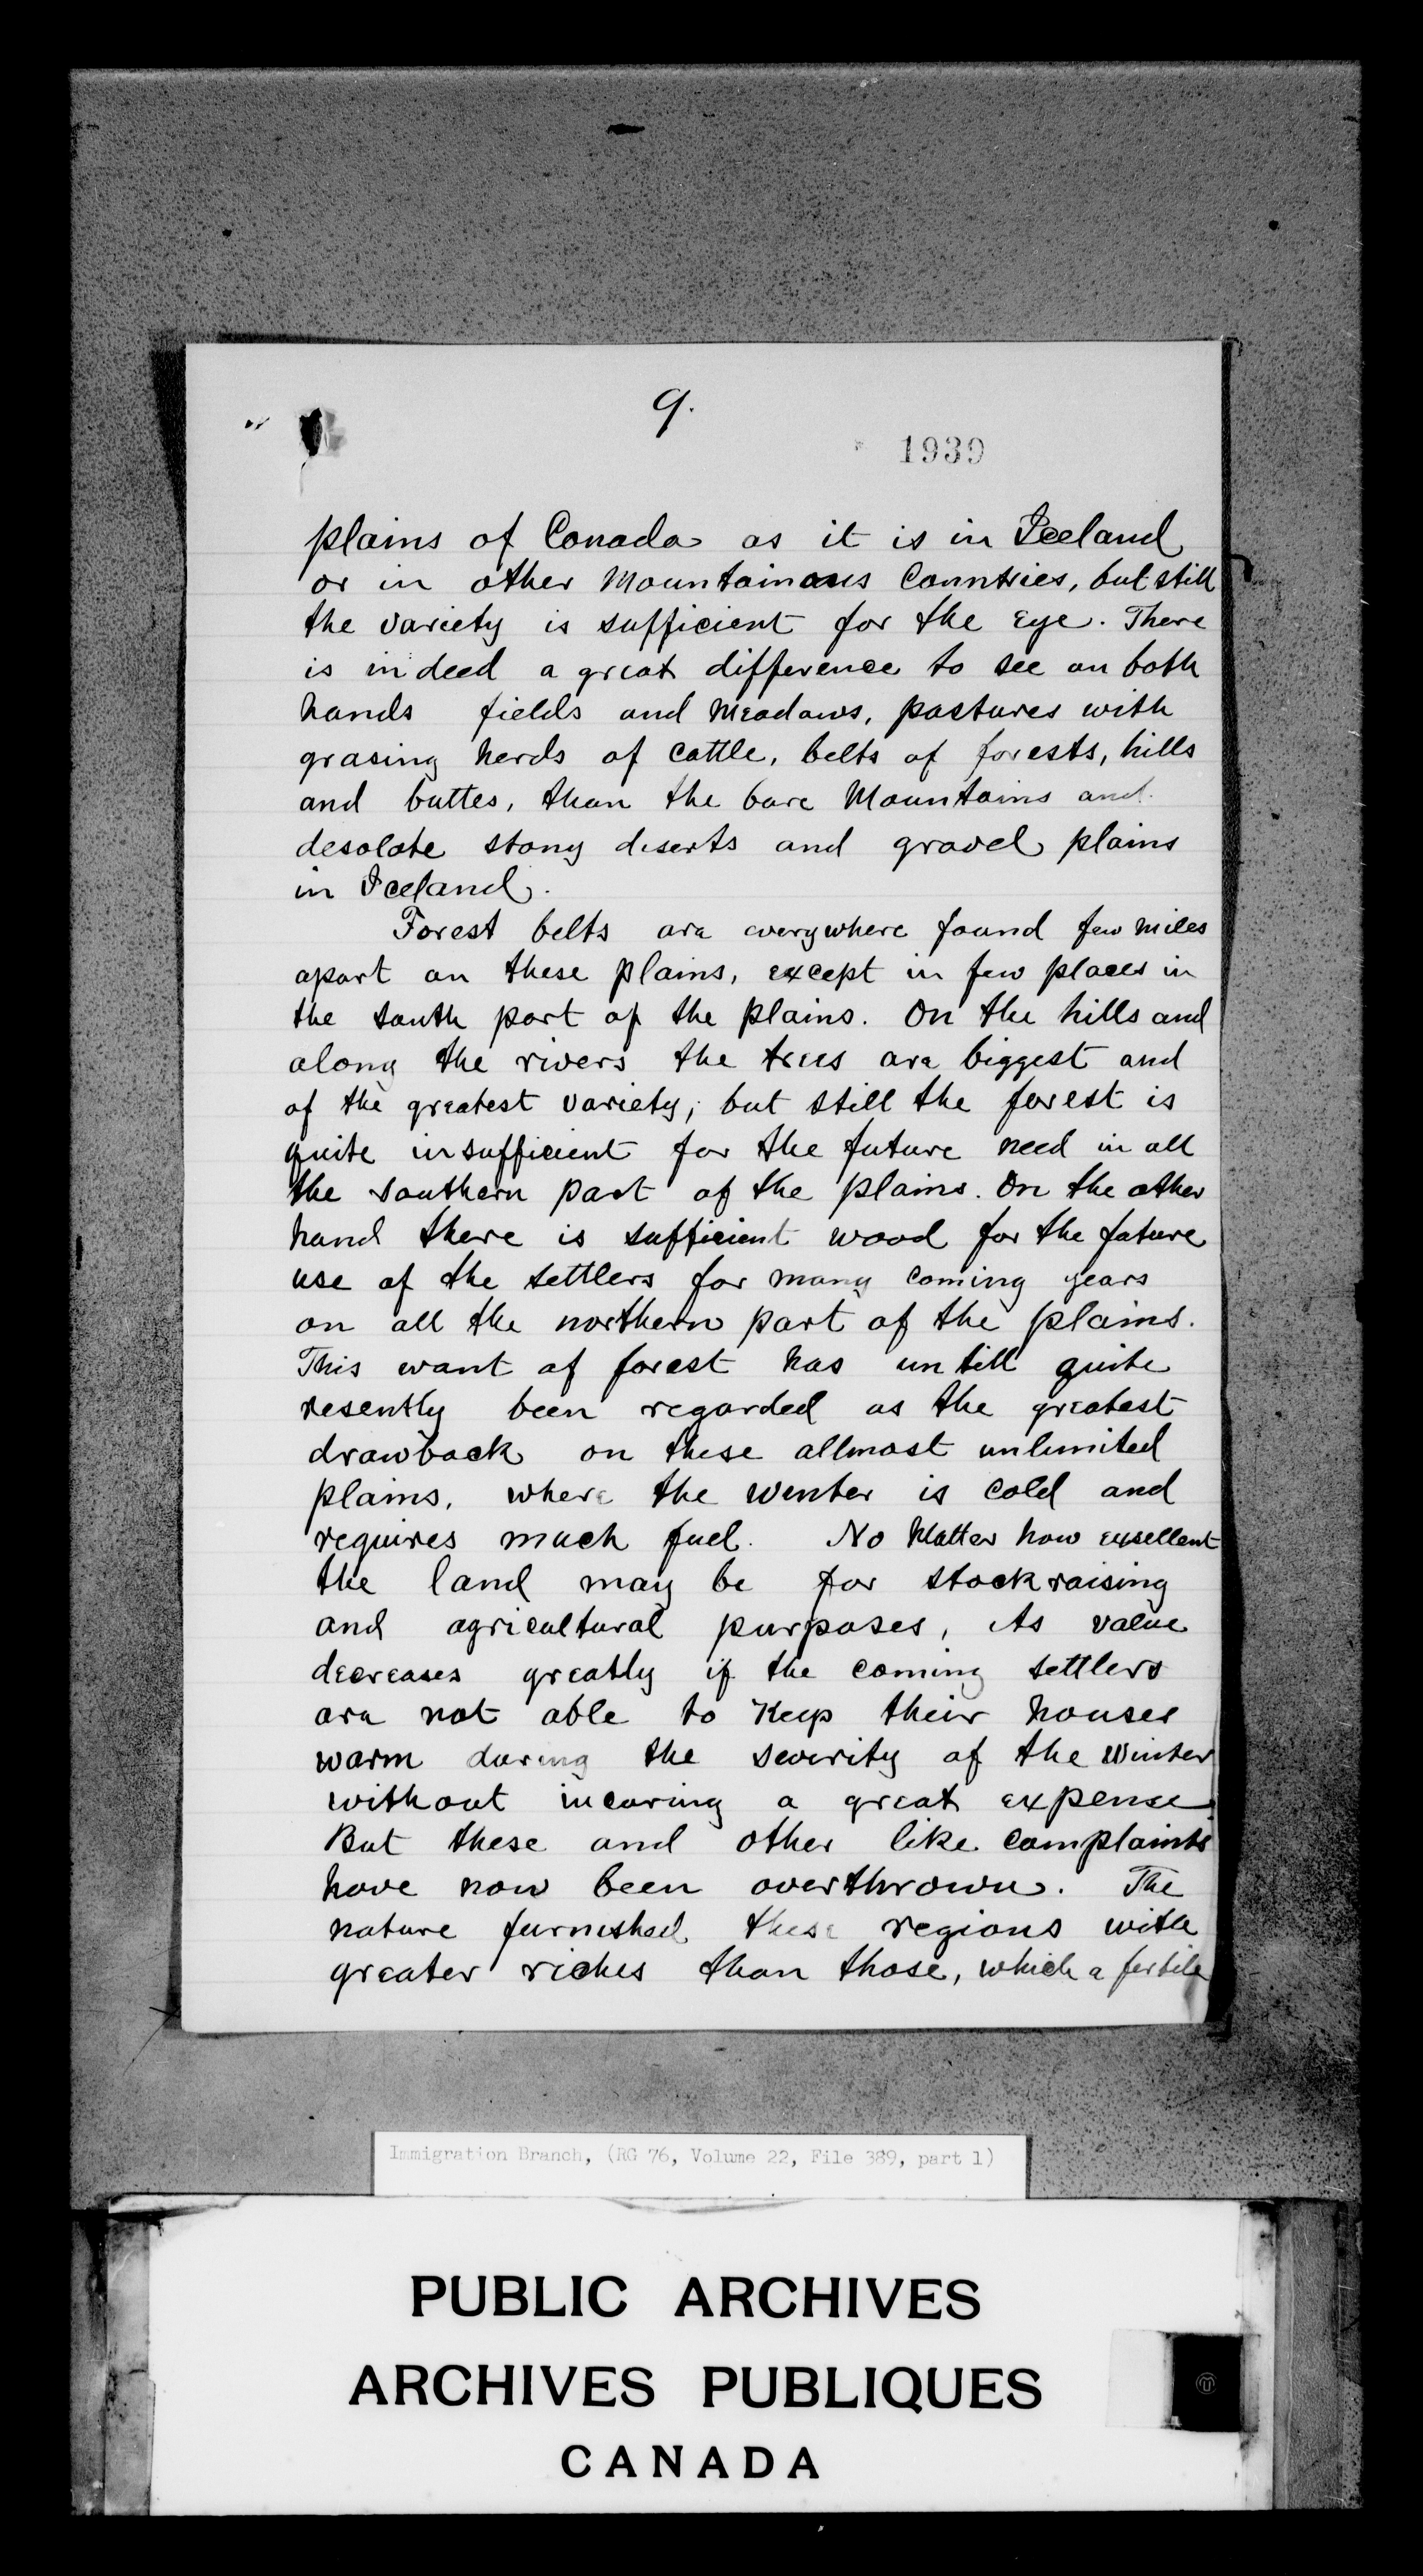 9.
1939
plains of Canada as it is in Iceland
or in other Mountainous Countries, but still
the variety is sufficient for the eye. There
is indeed a great difference to see on both
hands fields and Meadows, pastures with
grasing herds of cattle, belts of forests, hills
and buttes, than the bare Mountains and
desolate stony deserts and gravel plains
in Iceland.
Forest belts are everywhere found few miles
apart on these plains, except in few places in
the south part of the plains. On the hills and
along the rivers the trees are biggest and
of the greatest variety; but still the forest is
quite insufficient for the future need in all
the southern part of the plains. On the other
hand there is sufficient wood for the future
use of the settlers for many coming years
on all the northern part of the plains.
This want of forest has untill quite
resently been regarded as the greatest
drawback on these allmost unlimited
plains, where the winter is cold and
requires much fuel. No Matter how exsellent
the land may be for stockraising
and agricultural purposes, its value
decreases greatly if the coming settlers
are not able to Keep their houses
warm during the severity of the Winter
without incuring a great expense.
But these and other like complaints
have now been overthrown. The
nature furnished these regions with
greater riches than those, which a fertile
Immigration Branch, (RG 76, Volume 22, File 389, part 1)
PUBLIC ARCHIVES
ARCHIVES PUBLIQUES
CANADA